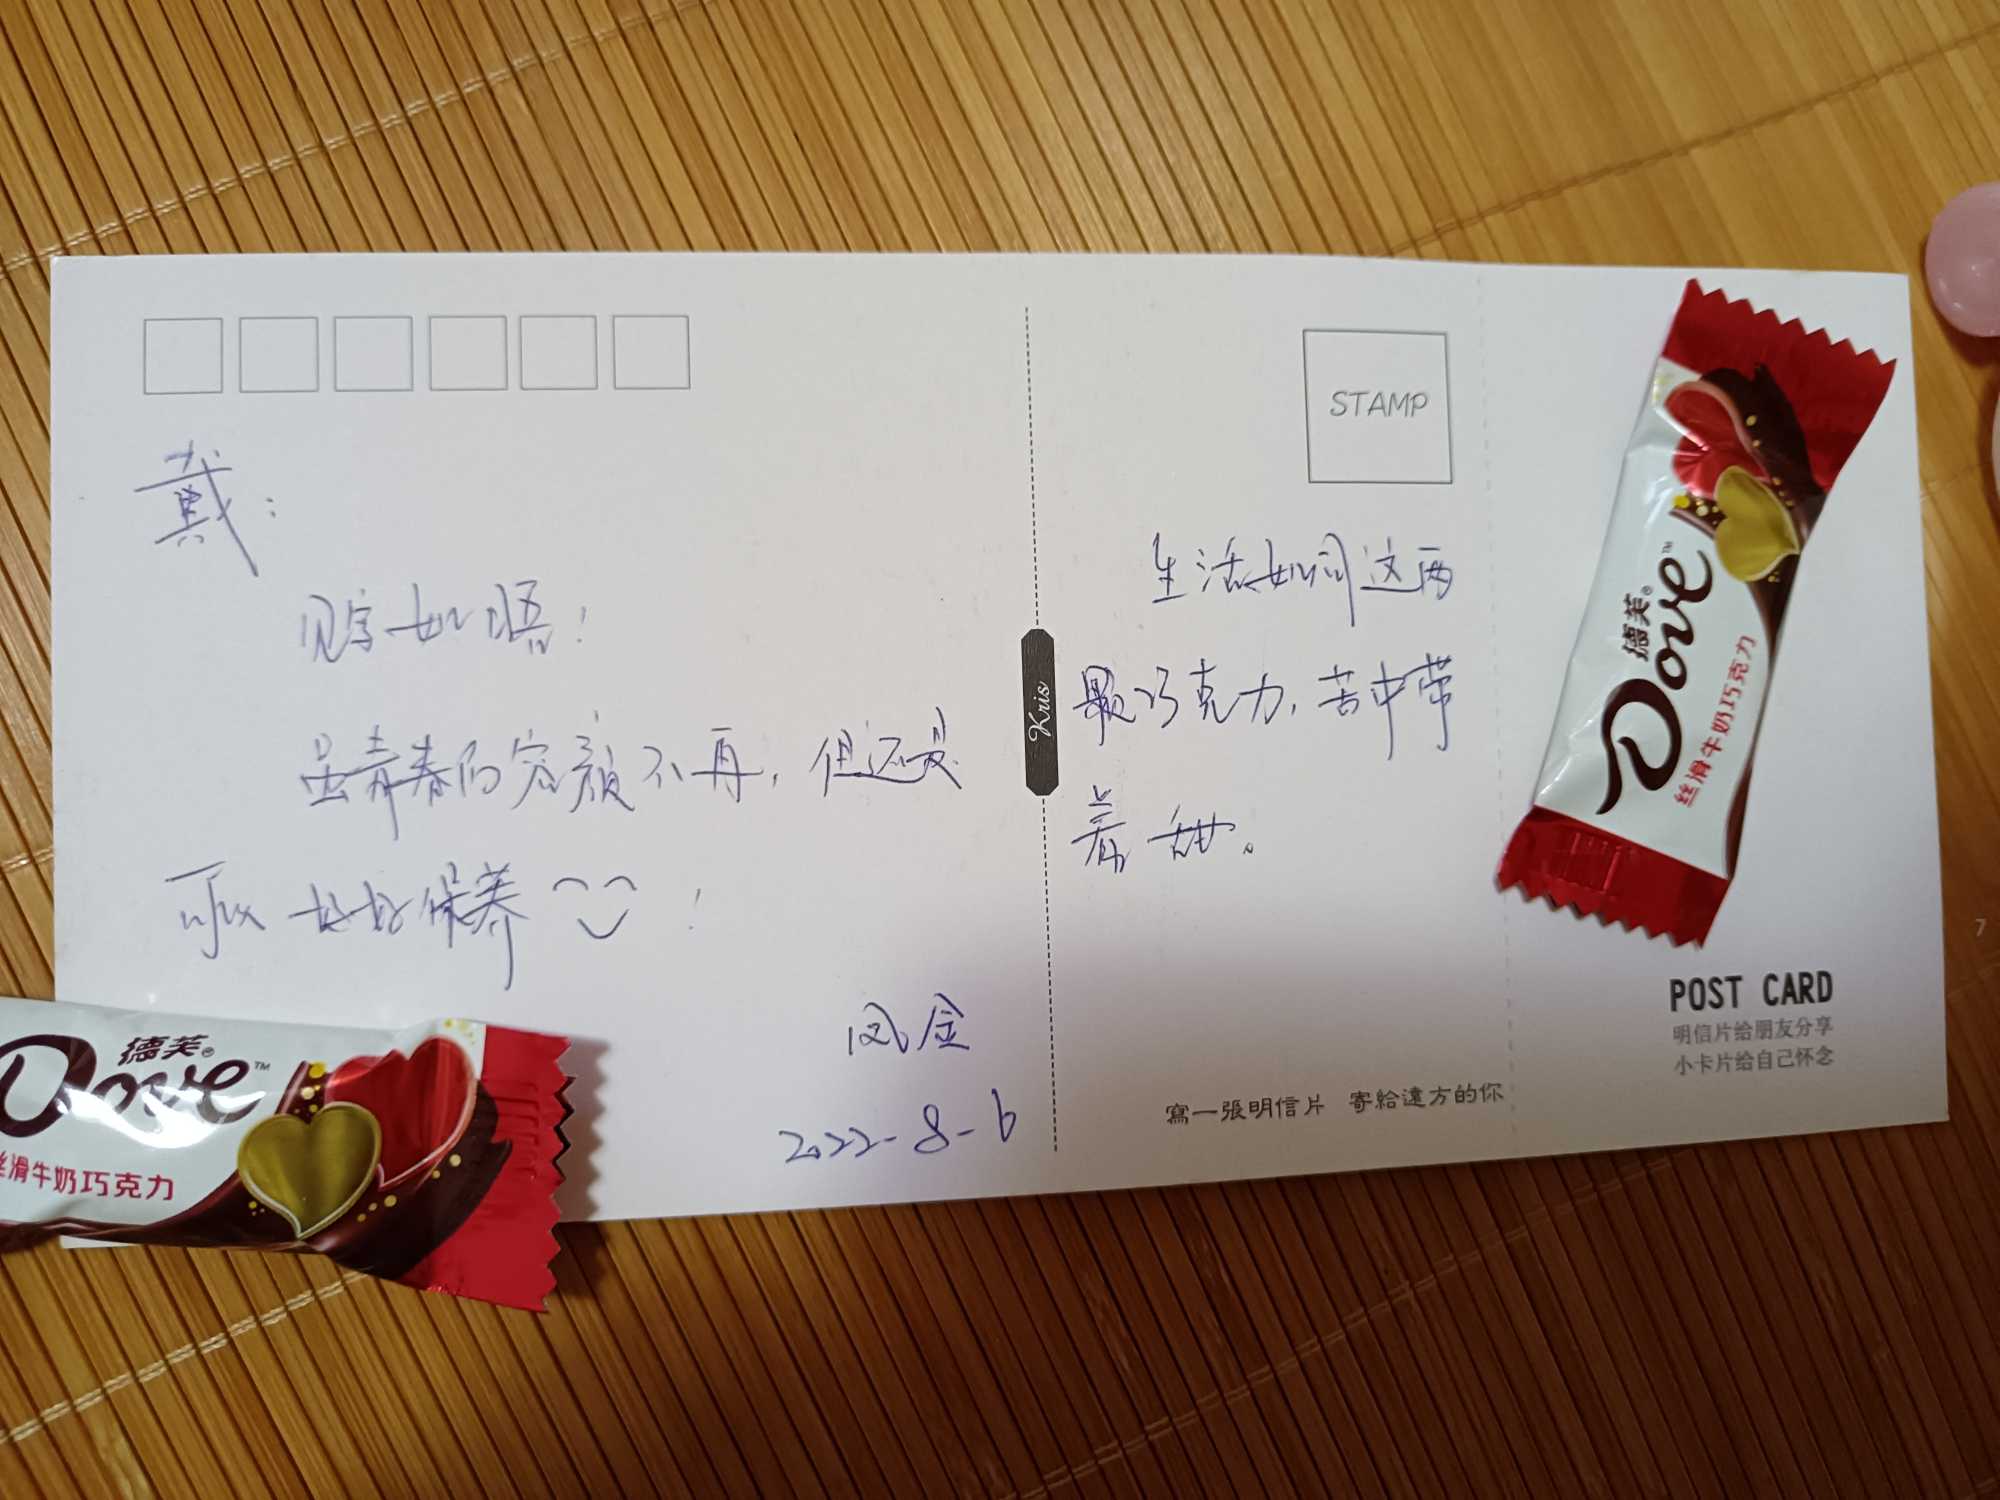 戴:
见字如晤!
虽青春的容颜不再,但还是
可以好好保养 !
凤金
2022-8-6
Kris
STAMP
生活如同这两
颗巧克力,苦中带
着甜。
寫一張明信片 寄給遠方的你
POST CARD
明信片给朋友分享
小卡片给自己怀念
德芙®
Dove™
丝滑牛奶巧克力
德芙®
Dove™
丝滑牛奶巧克力
7